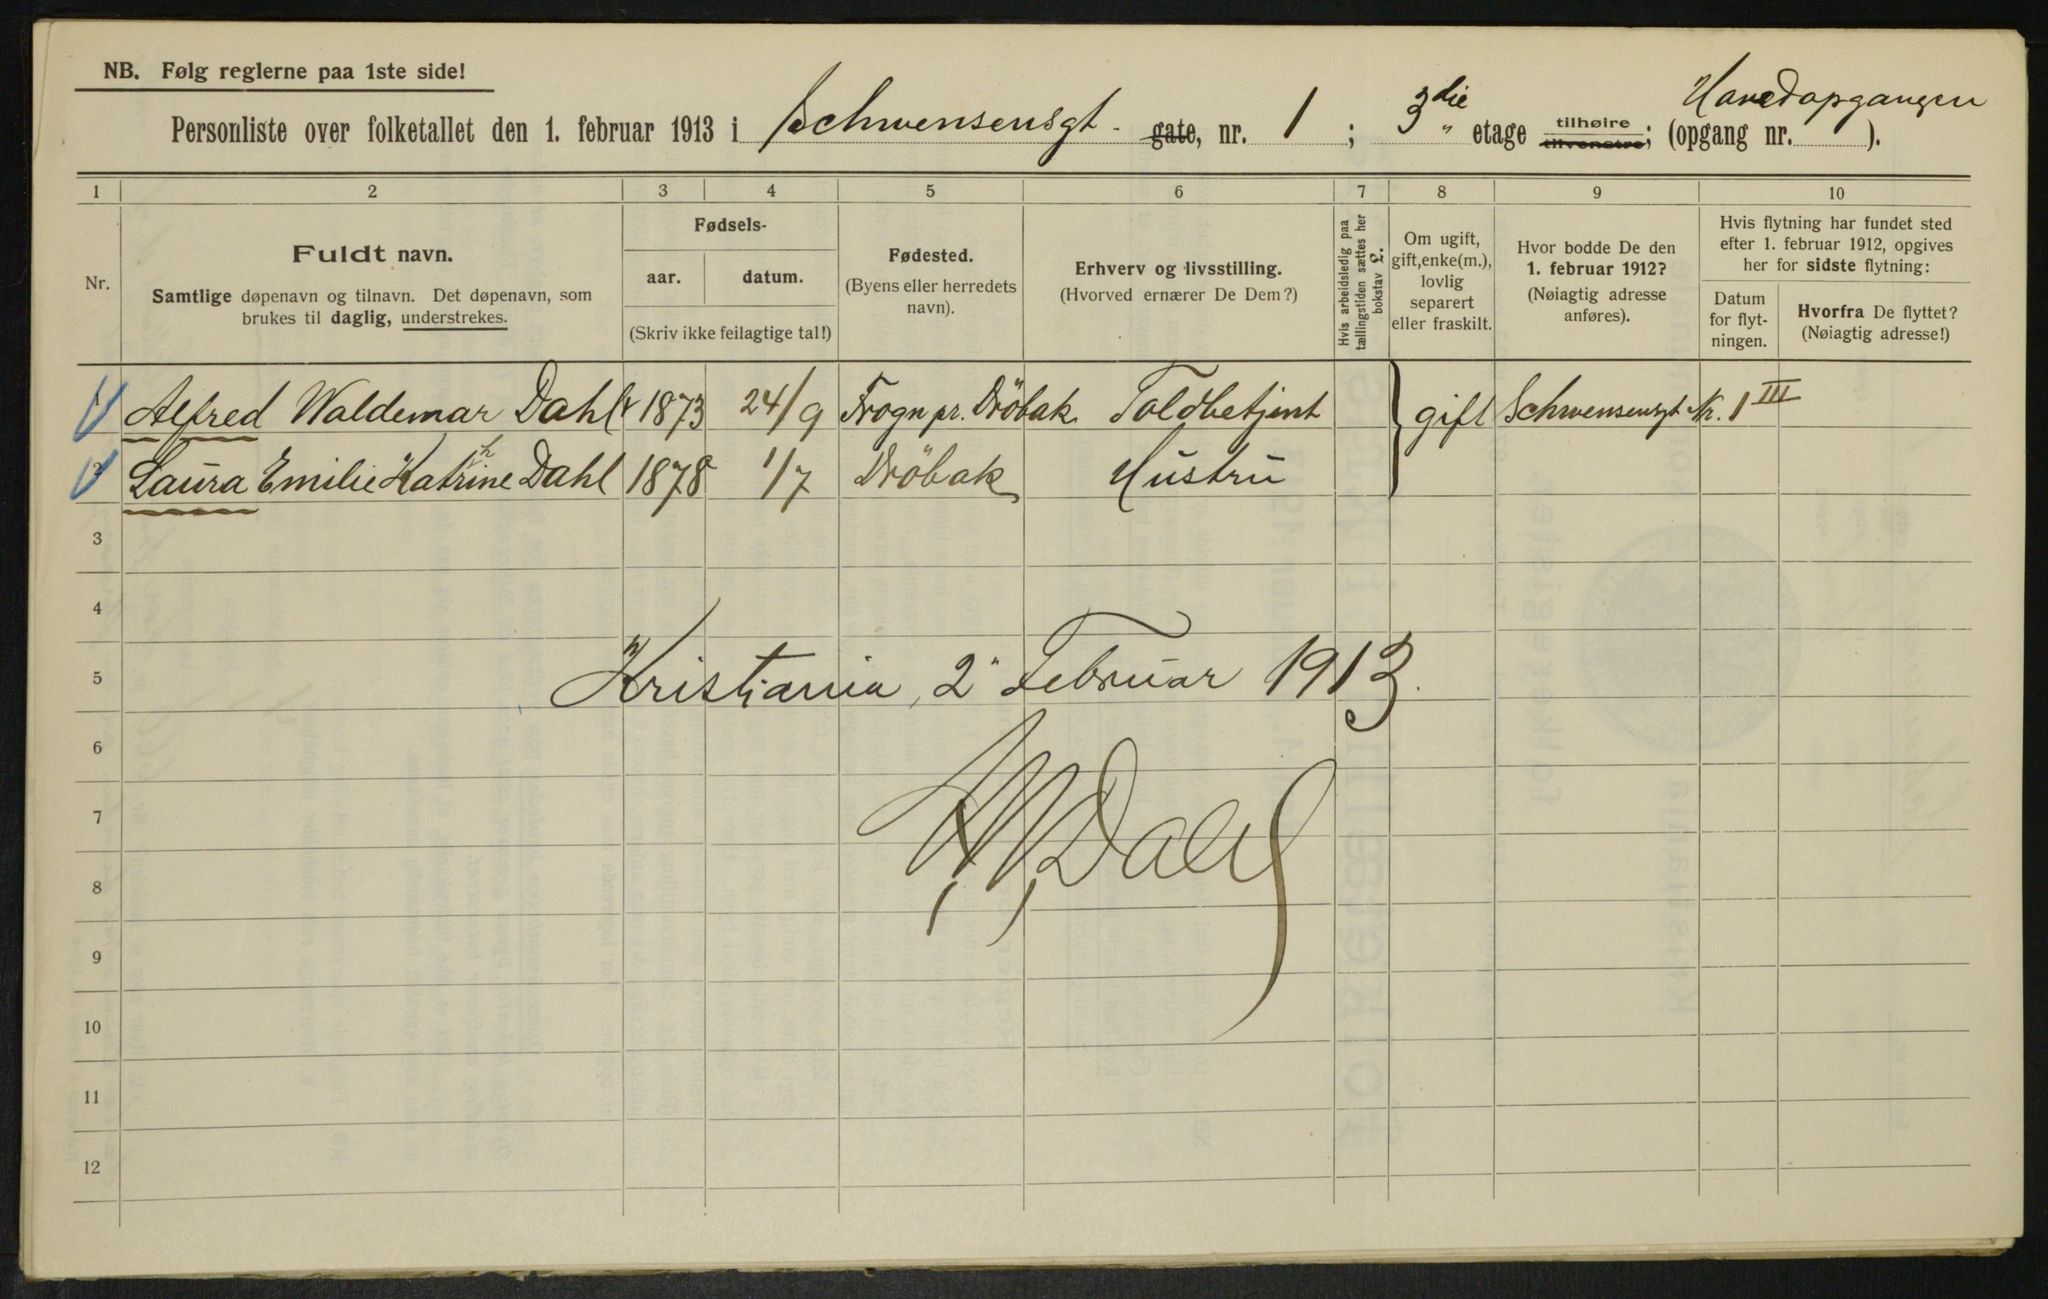 NB. Følg reglerne paa 1ste side!
Personliste over folketallet den 1. februar 1913 i Schwensensgt. gate, nr. 1 ; 3die " etage tilhøire tilvenstre; (opgang nr. Hovedopgangen ).
1 2 3 4 5 6 7 8 9 10
Nr.
Fuldt navn.
Samtlige døpenavn og tilnavn. Det døpenavn, som
brukes til daglig, understrekes.
Fødsels-
aar. datum.
(Skriv ikke feilagtige tal!)
Fødested.
(Byens eller herredets
navn).
Erhverv og livsstilling.
(Hvorved ernærer De Dem?)
Hvis arbeidsledig paa
tællingstiden sættes her
bokstav L.
Om ugift,
gift, enke(m.),
lovlig
separert
eller fraskilt.
Hvor bodde De den
1. februar 1912?
(Nøiagtig adresse
anføres).
Hvis flytning har fundet sted
efter 1. februar 1912, opgives
her for sidste flytning:
Datum
for flyt-
ningen.
Hvorfra De flyttet?
(Nøiagtig adresse!)
1 Alfred Waldemar Dahl 1873 24/9 Frogn pr. Dröbak Toldbetjent gift Schwensensgt Nr. 1 III
2 Laura Emilie Kathrine Dahl 1878 1/7 Dröbak Hustru
3
4
5 Kristiania, 2" Februar 1913.
6
7
8 A. W. Dahl
9
10
11
12